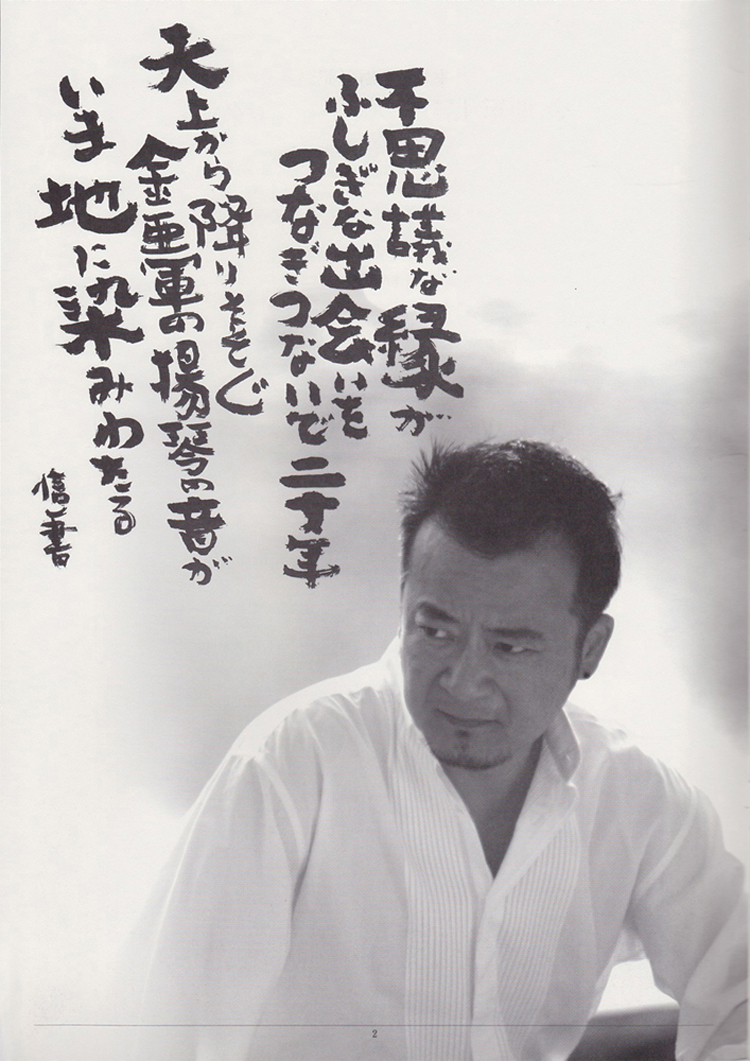 不思議な縁が
ふしぎな出会いを
つなぎつないで二十年
天上から降りそそぐ
金亜軍の揚琴の音が
いま地に染みわたる
2